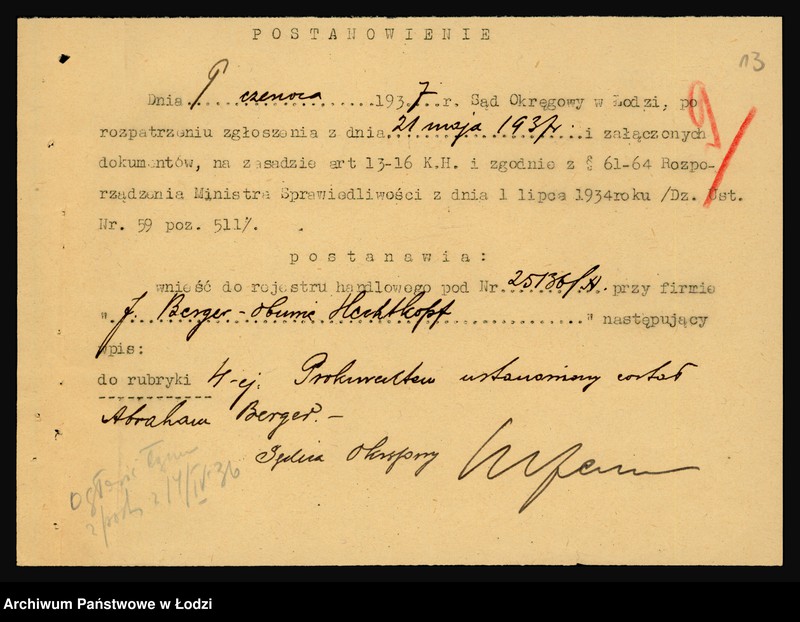 POSTANOWIENIE
13
Dnia 9 czerwca 1937 r. Sąd Okręgowy w Łodzi, po
9
rozpatrzeniu zgłoszenia z dnia 21 maja 1937r. i załączonych
dokumentów, na zasadzie art 13-16 K.H. i zgodnie z § 61-64 Rozpo-
rządzenia Ministra Sprawiedliwości z dnia 1 lipca 1934roku /Dz. Ust.
Nr. 59 poz. 511/.
postanawia:
wnieść do rejestru handlowego pod Nr 25136/A. przy firmie
" J. Berger - obecnie Hechtkopf " następujący
wpis:
do rubryki 4-ej. Prokurentem ustanowiony został
Abraham Berger. -
Sędzia Okręgowy
Archiwum Państwowe w Łodzi